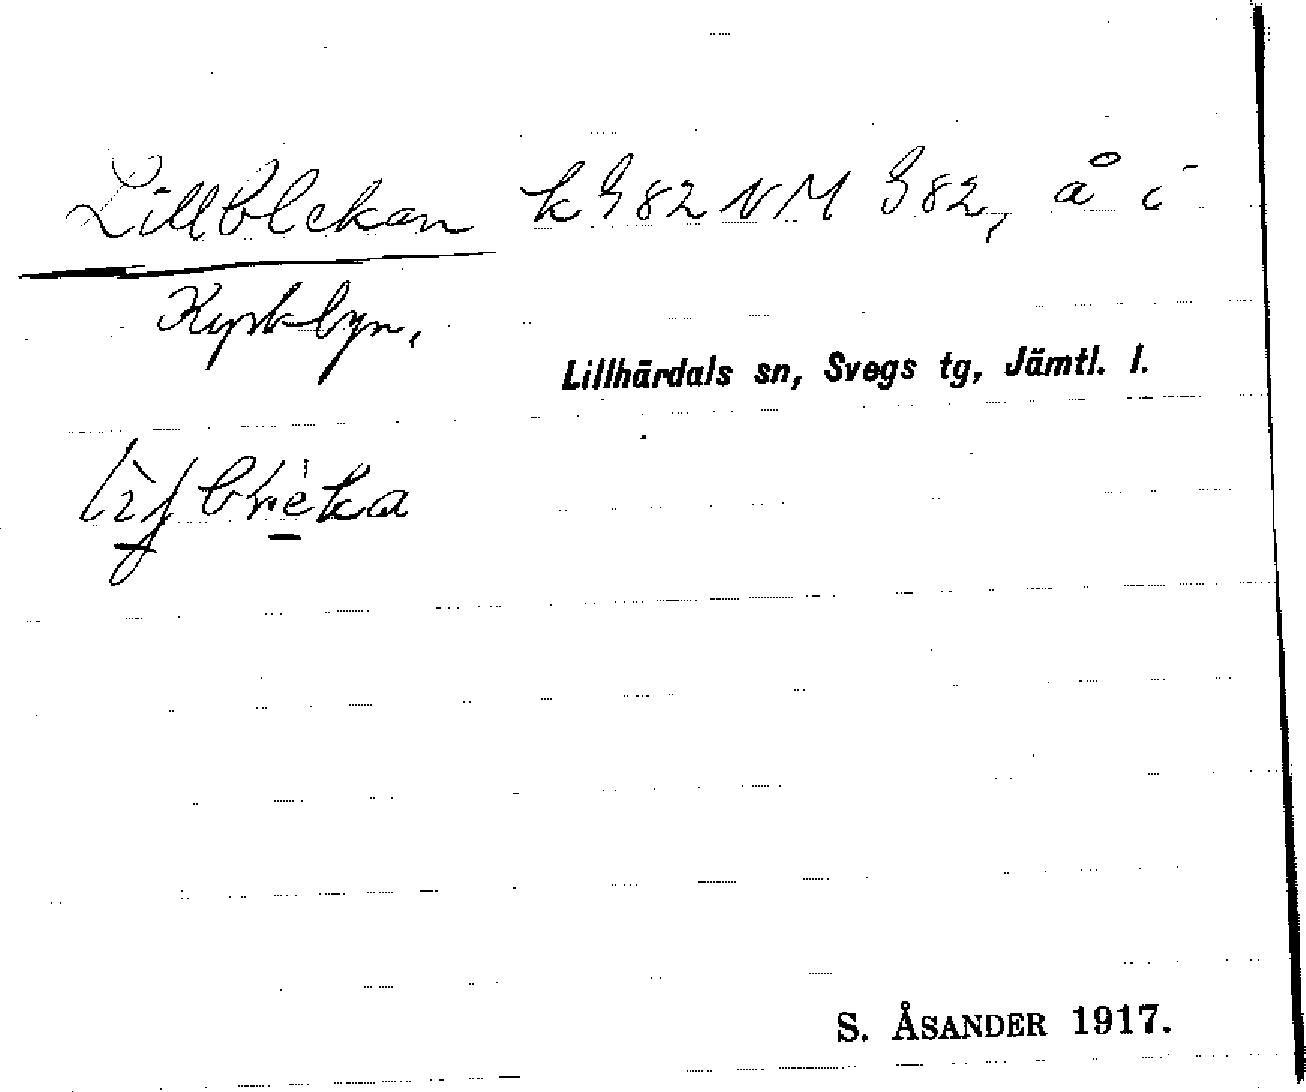 Lillblekan k 982 NM 982, å i
Kyrkbyn,
Lillhärdals sn, Svegs tg, Jämtl. l.
S. ÅSANDER 1917.